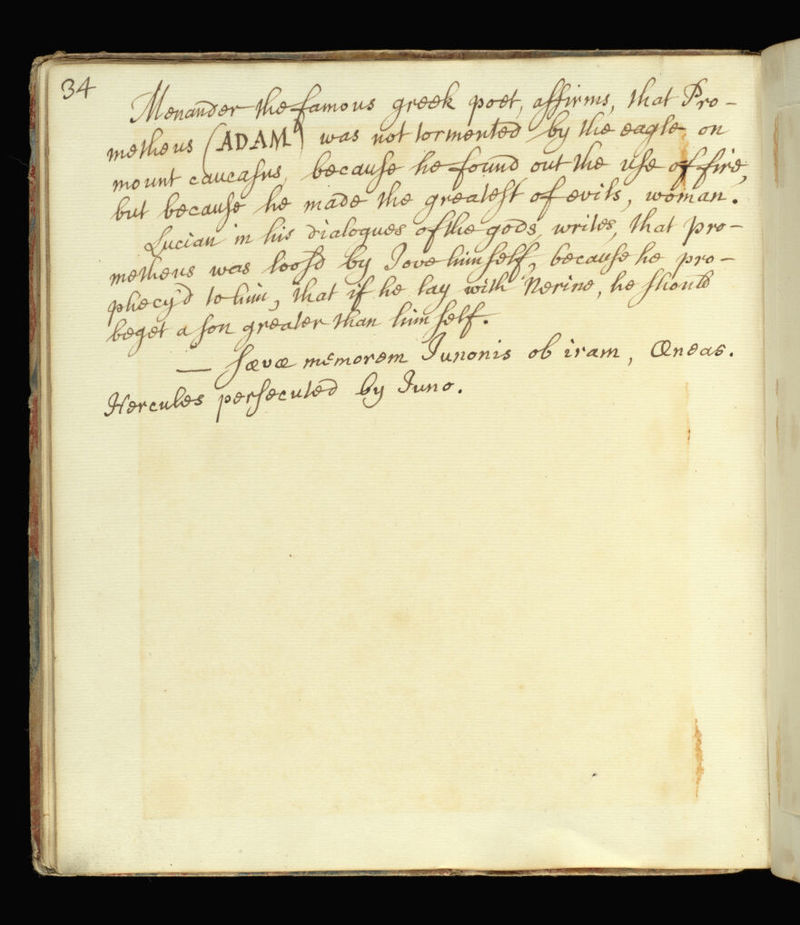 34
Menander the famous greek poet, affirms, that Pro-
metheus (ADAM) was not tormented by the eagle on
mount caucasus, because he found out the use of fire,
but because he made the greatest of evils, woman.
Lucian in his dialogues of the gods, writes, that pro-
metheus was loosd by Jove himself, because he pro-
phecy'd to him, that if he lay with Nerine, he should
beget a son greater than himself.
— sævæ memorem Junonis ob iram, Œneas.
Hercules persecuted by Juno.